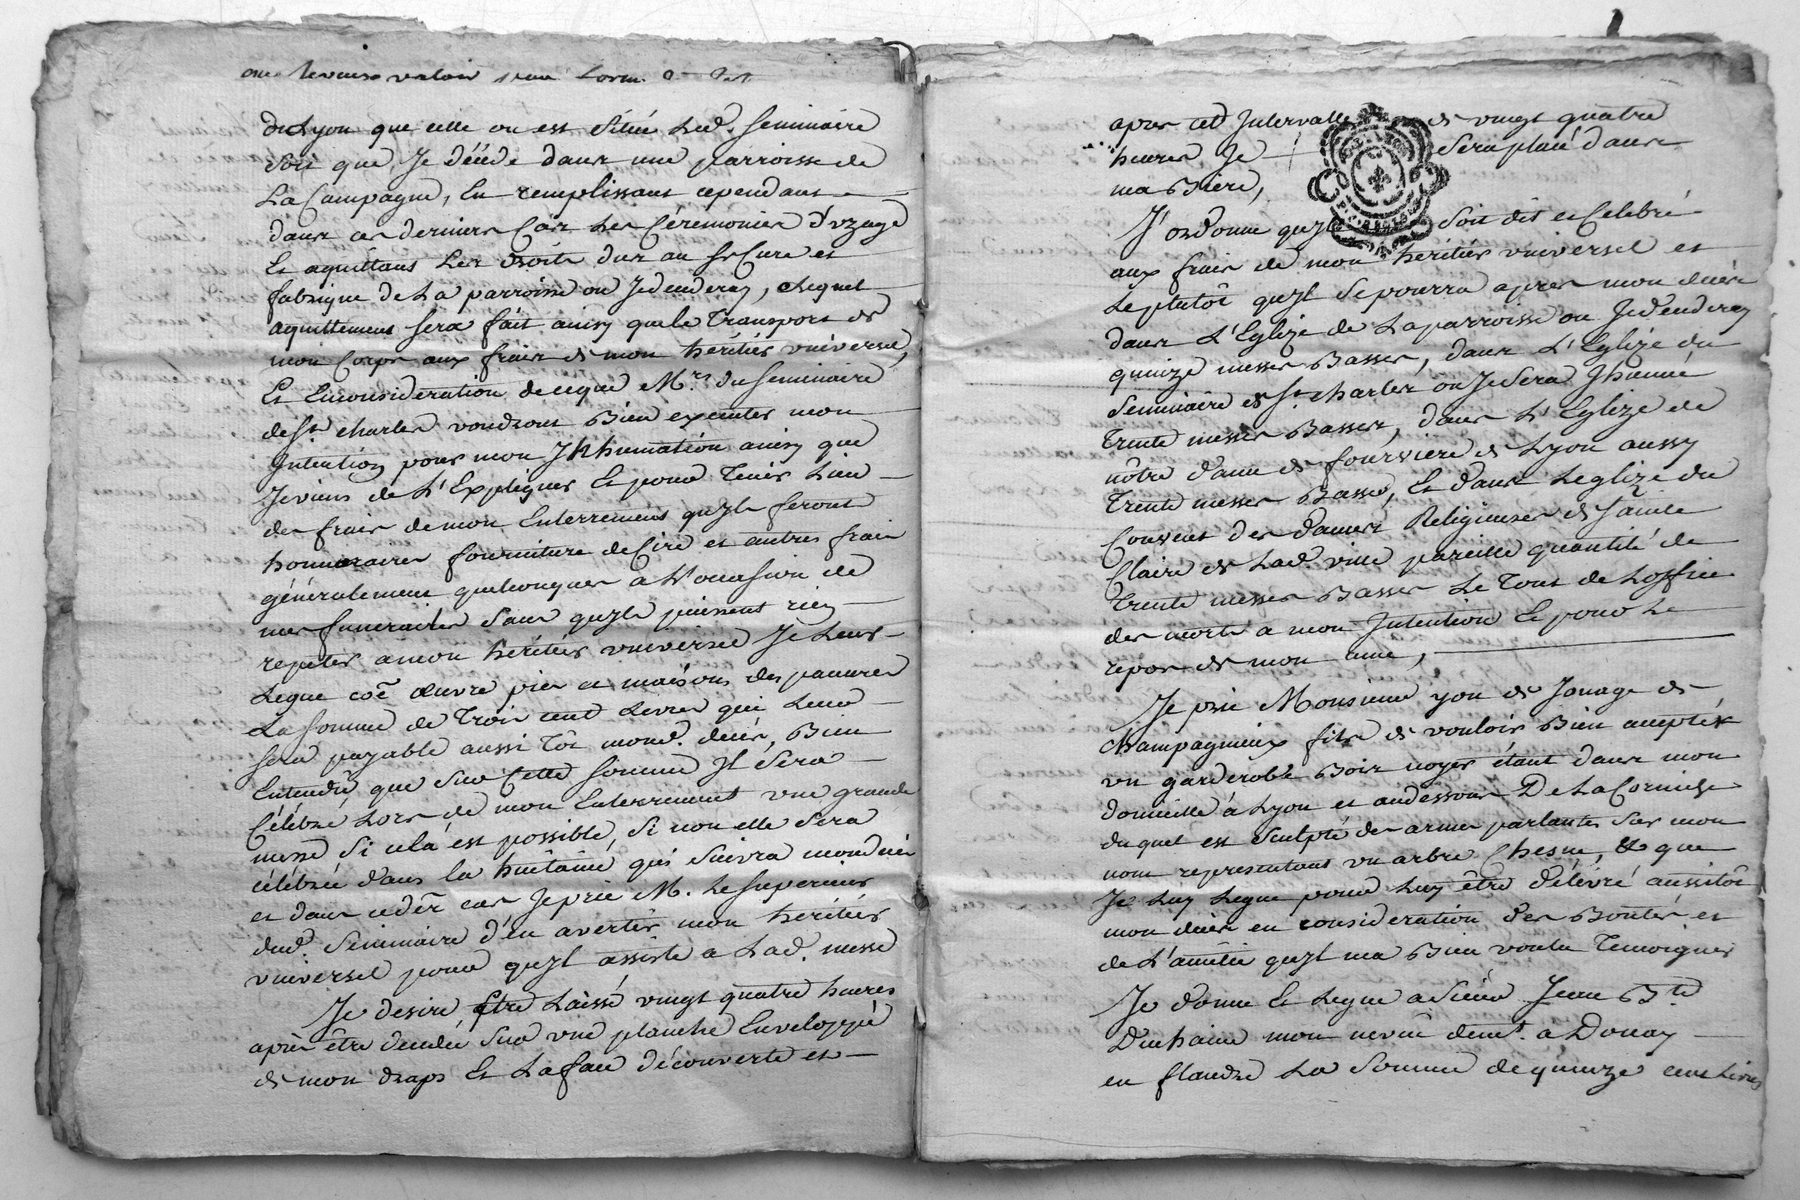 valoir
de Lyon que celle ou est située Led. seminaire
soit que Je décéde dans une parroisse de
La Campagne, En remplissant cependant
dans ces derniers Cas Les Cérémonies d'uzage
Et aquittant Les droits dus au Sr Curé et
fabrique de La parroisse ou Jedecederay, Lequel
aquittement sera fait ainsy que le Transport de
mon Corps aux frais de mon héritier universel,
Et Enconsideration de ceque Mrs. du Seminaire
de St charles voudront Bien executer mon
Intention pour mon Jnhumation ainsy que
Jeviens de L'Expliquer Et pour Tenir Lieu
des frais de mon Enterrement qu'jls feront
honnoraires fourniture de Cire et autres frais
généralement quelconques a L'ocasion de
mes funerailles sans qu'jls puissent rien
repeter a mon héritier universel Je Leur
Legue coe œuvre pies et maisons des pauvres
La somme de Trois cent Livres qui Leur
sera payable aussi Tôt mond. décès, Bien
Entendu que sur Cette somme Jl sera
Célébré Lors de mon Enterrement une grande
messe si cela est possible, si non elle sera
célébrée dans la huitaine qui suivra mon décès
et dans ce der cas Jeprie M. Le superieur
dud. Seminaire d'en avertir mon héritier
universel pour qu'jl assiste a Lad. messe
Je desire Etre Laissé vingt quatre heures
après être decedé sur une planche Enveloppé
de mon draps Et La face découverte et
apres cet Jntervalle de vingt quatre
heures Je sera placé dans
ma Biere,
J'ordonne qu'jl soit dit et Celebré
aux frais de mon héritier universel et
Le plutôt qu'jl se pourra apres mon décès
dans L'Eglize de La parroisse ou Jedecederay
quinze messes Basses, dans L'Eglize du
Seminaire de St. charles ou Je sera Jhumé
Trente messes Basses, dans L'Eglize de
nôtre dame de fourviere de Lyon aussy
Trente messes Basses, Et dans Leglize du
Couvent des dames Religieuses de Sainte
Claire de Lad. ville pareille quantité de
Trente messes Basses Le Tout de Loffice
des morts a mon Intention Et pour Le
repos de mon ame,
Je prie Monsieur yon de Jonage de
Champagnieux fils de vouloir Bien accepter
un garderobe Bois noyer étant dans mon
domicille à Lyon et audessous De La Corniche
du quel est sculpté des armes parlantes sur mon
nom representant un arbre Chesne, & que
Je Luy Legue pour Luy être délivré aussitôt
mon décès en consideration des Bontés et
de L'amitié qu'jl ma Bien voulu Temoigner
Je donne Et Legue a Sieur Jean Bte
Duchaine mon neveu demt. a Douay
en flandre La Somme de quinze cent Livres